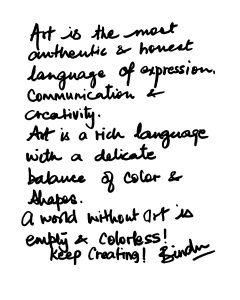 Art is the most
authentic & honest
language of expression,
Communication &
creativity.
Art is a rich language
with a delicate
balance of color &
shapes.
A world without Art is
empty & colorless!
Keep Creating! Bindu